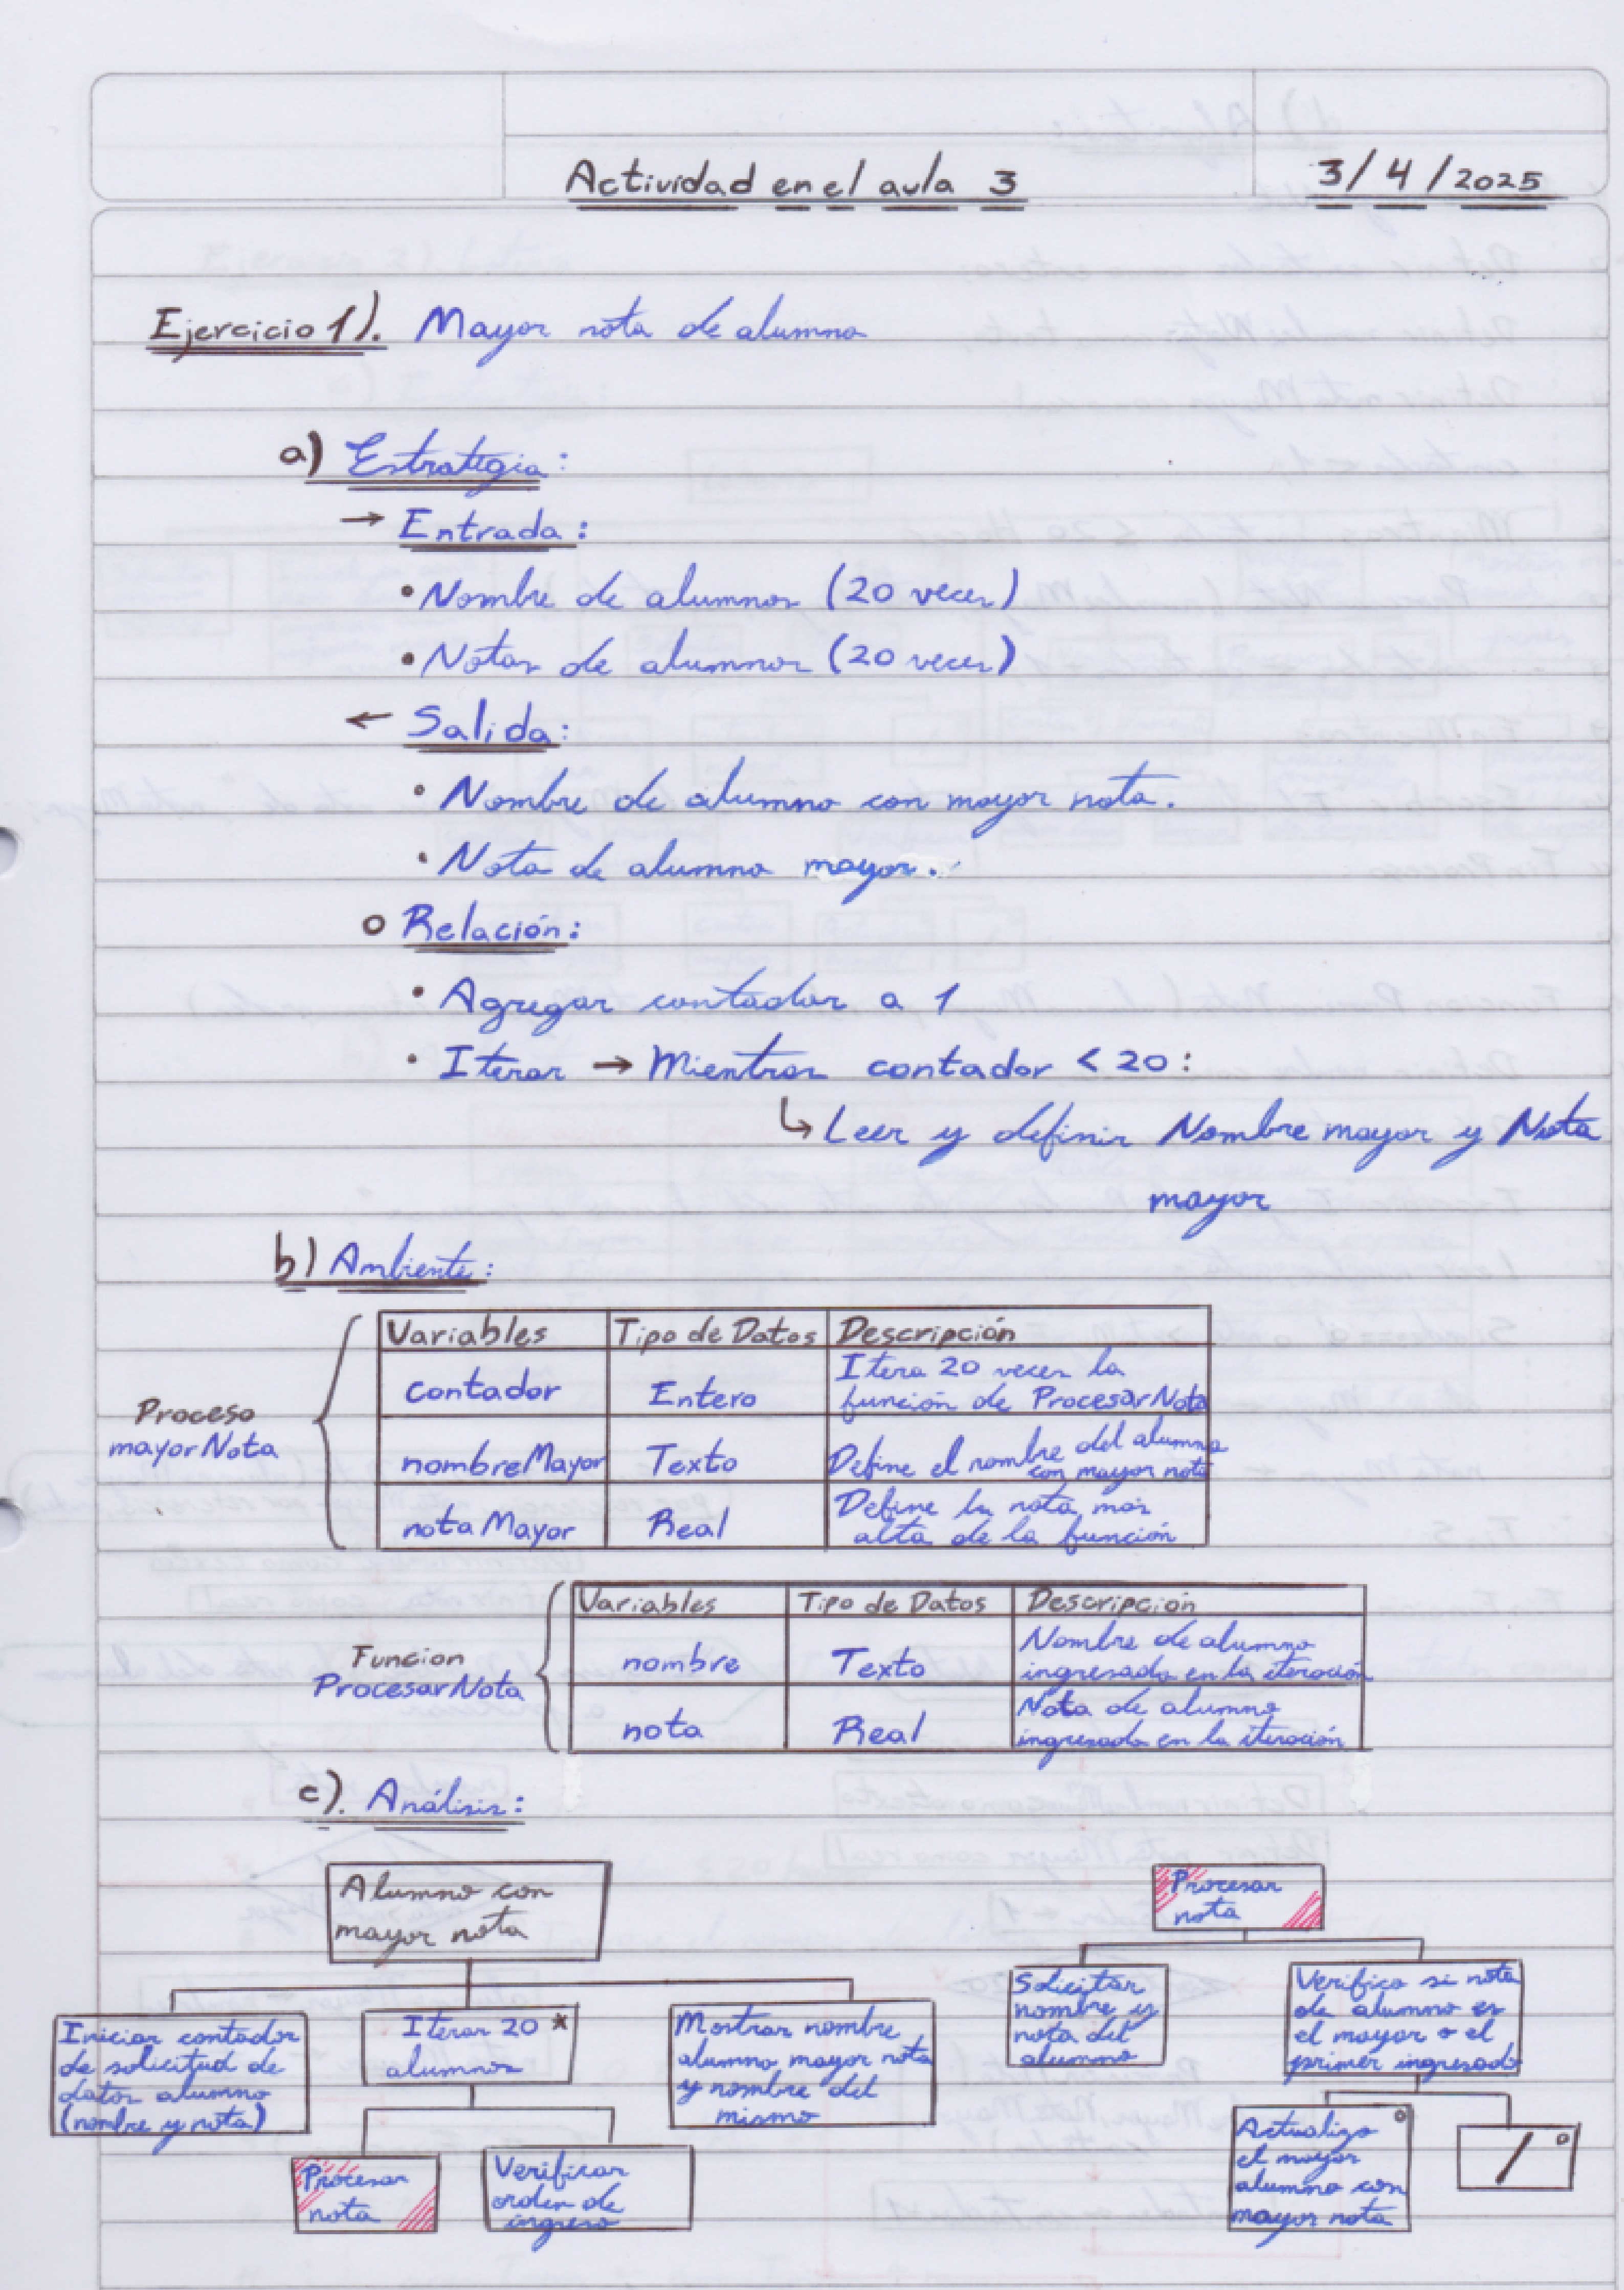 Actividad en el aula 3
3/4/2025
Ejercicio 1). Mayor nota de alumno
a) Estrategia:
→ Entrada:
• Nombre de alumnos (20 veces)
• Notas de alumnos (20 veces)
← Salida:
• Nombre de alumno con mayor nota.
• Nota de alumno mayor.
o Relación:
• Agregar contador a 1
• Iterar → Mientras contador < 20:
↳ Leer y definir Nombre mayor y Nota
mayor
b) Ambiente:
Proceso
mayorNota
Variables Tipo de Datos Descripción
contador Entero Itera 20 veces la
función de ProcesarNota
nombreMayor Texto Define el nombre del alumno
con mayor nota
notaMayor Real Define la nota más
alta de la función
Funcion
ProcesarNota
Variables Tipo de Datos Descripción
nombre Texto Nombre de alumno
ingresado en la iteración
nota Real Nota de alumno
ingresado en la iteración
c). Análisis:
Alumno con
mayor nota
Iniciar contador
de solicitud de
datos alumno
(nombre y nota)
Iterar 20 *
alumnos
Mostrar nombre
alumno mayor nota
y nombre del
mismo
Procesar
nota
Verificar
orden de
ingreso
Procesar
nota
Solicitar
nombre y
nota del
alumno
Verifico si nota
de alumno es
el mayor o el
primer ingresado
Actualizo o
el mayor
alumno con
mayor nota
/ o